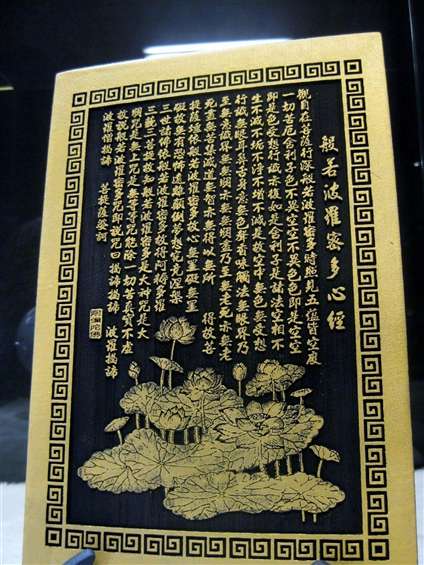 般若波羅密多心經
觀自在菩薩行深般若波羅密多時照見五蘊皆空度
一切苦厄舍利子色不異空空不異色色即是空空
即是色受想行識亦復如是舍利子是諸法空相不
生不滅不垢不淨不增不減是故空中無色無受想
行識無眼耳鼻舌身意無色聲香味觸法無眼界乃
至無意識界無無明亦無無明盡乃至無老死亦無老
死盡無苦集滅道無智亦無得以無所 得故菩
提薩埵依般若波羅密多故心無罣礙無罣
礙故無有恐怖遠離顛倒夢想究竟涅槃
三世諸佛依般若波羅密多故得阿耨多羅
三藐三菩提故知般若波羅密多是大神咒是大
明咒是無上咒是無等等咒能除一切苦真實不虛
故說般若波羅密多咒即說咒曰揭諦揭諦 波羅揭諦
波羅僧揭諦 菩提薩婆訶